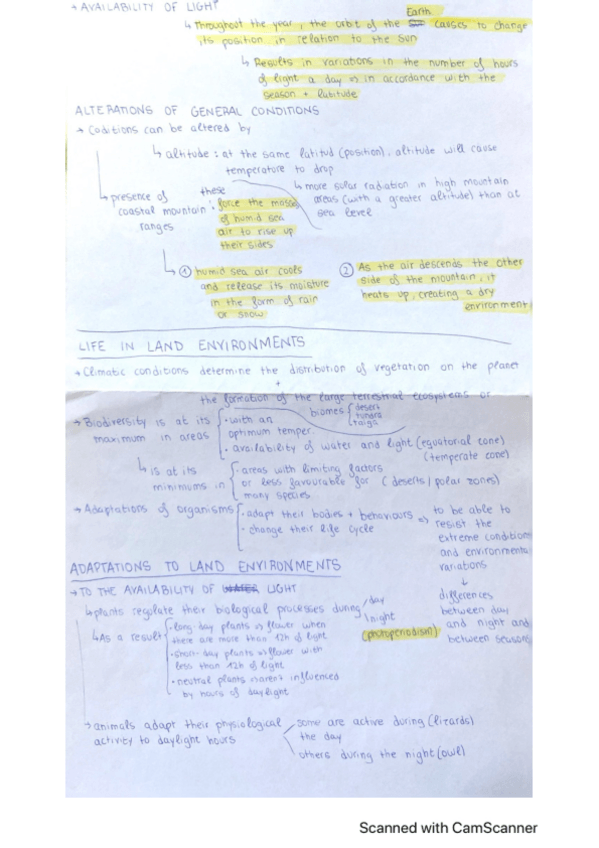 → AVAILABILITY OF LIGHT
↳ Throughout the year, the orbit of the Earth causes to change
its position in relation to the sun
↳ Results in variations in the number of hours
of light a day ⇒ in accordance with the
season + latitude
ALTERATIONS OF GENERAL CONDITIONS
→ Coditions can be altered by
↳ altitude: at the same latitud (position), altitude will cause
temperature to drop
↳ more solar radiation in high mountain
areas (with a greater altitude) than at
sea level
↳ presence of
coastal mountain:
ranges
these
force the masses
of humid sea
air to rise up
their sides
↳ ① humid sea air cools
and release its moisture
in the form of rain
or snow
② As the air descends the other
side of the mountain, it
heats up, creating a dry
environment
LIFE IN LAND ENVIRONMENTS
→ Climatic conditions determine the distribution of vegetation on the planet
+
the formation of the large terrestrial ecosystems or
biomes { desert
tundra
taiga
→ Biodiversity is at its
maximum in areas
· with an
optimum temper.
· availability of water and light (equatorial zone)
(temperate zone)
↳ is at its
minimums in
· areas with limiting factors
or less favourable for (deserts/polar zones)
many species
→ Adaptations of organisms
· adapt their bodies + behaviours ⇒
· change their life cycle
to be able to
resist the
extreme conditions
and environmental
variations
↓
differences
between day
and night and
between seasons
ADAPTATIONS TO LAND ENVIRONMENTS
→ TO THE AVAILABILITY OF WATER LIGHT
↳ plants regulate their biological processes during / day
\ night
(photoperiodism)
↳ As a result
· long-day plants ⇒ flower when
there are more than 12h of light
· short-day plants ⇒ flower with
less than 12h of light
· neutral plants ⇒ aren't influenced
by hours of daylight
→ animals adapt their physiological
activity to daylight hours
some are active during (lizards)
the day
others during the night (owl)
Scanned with CamScanner